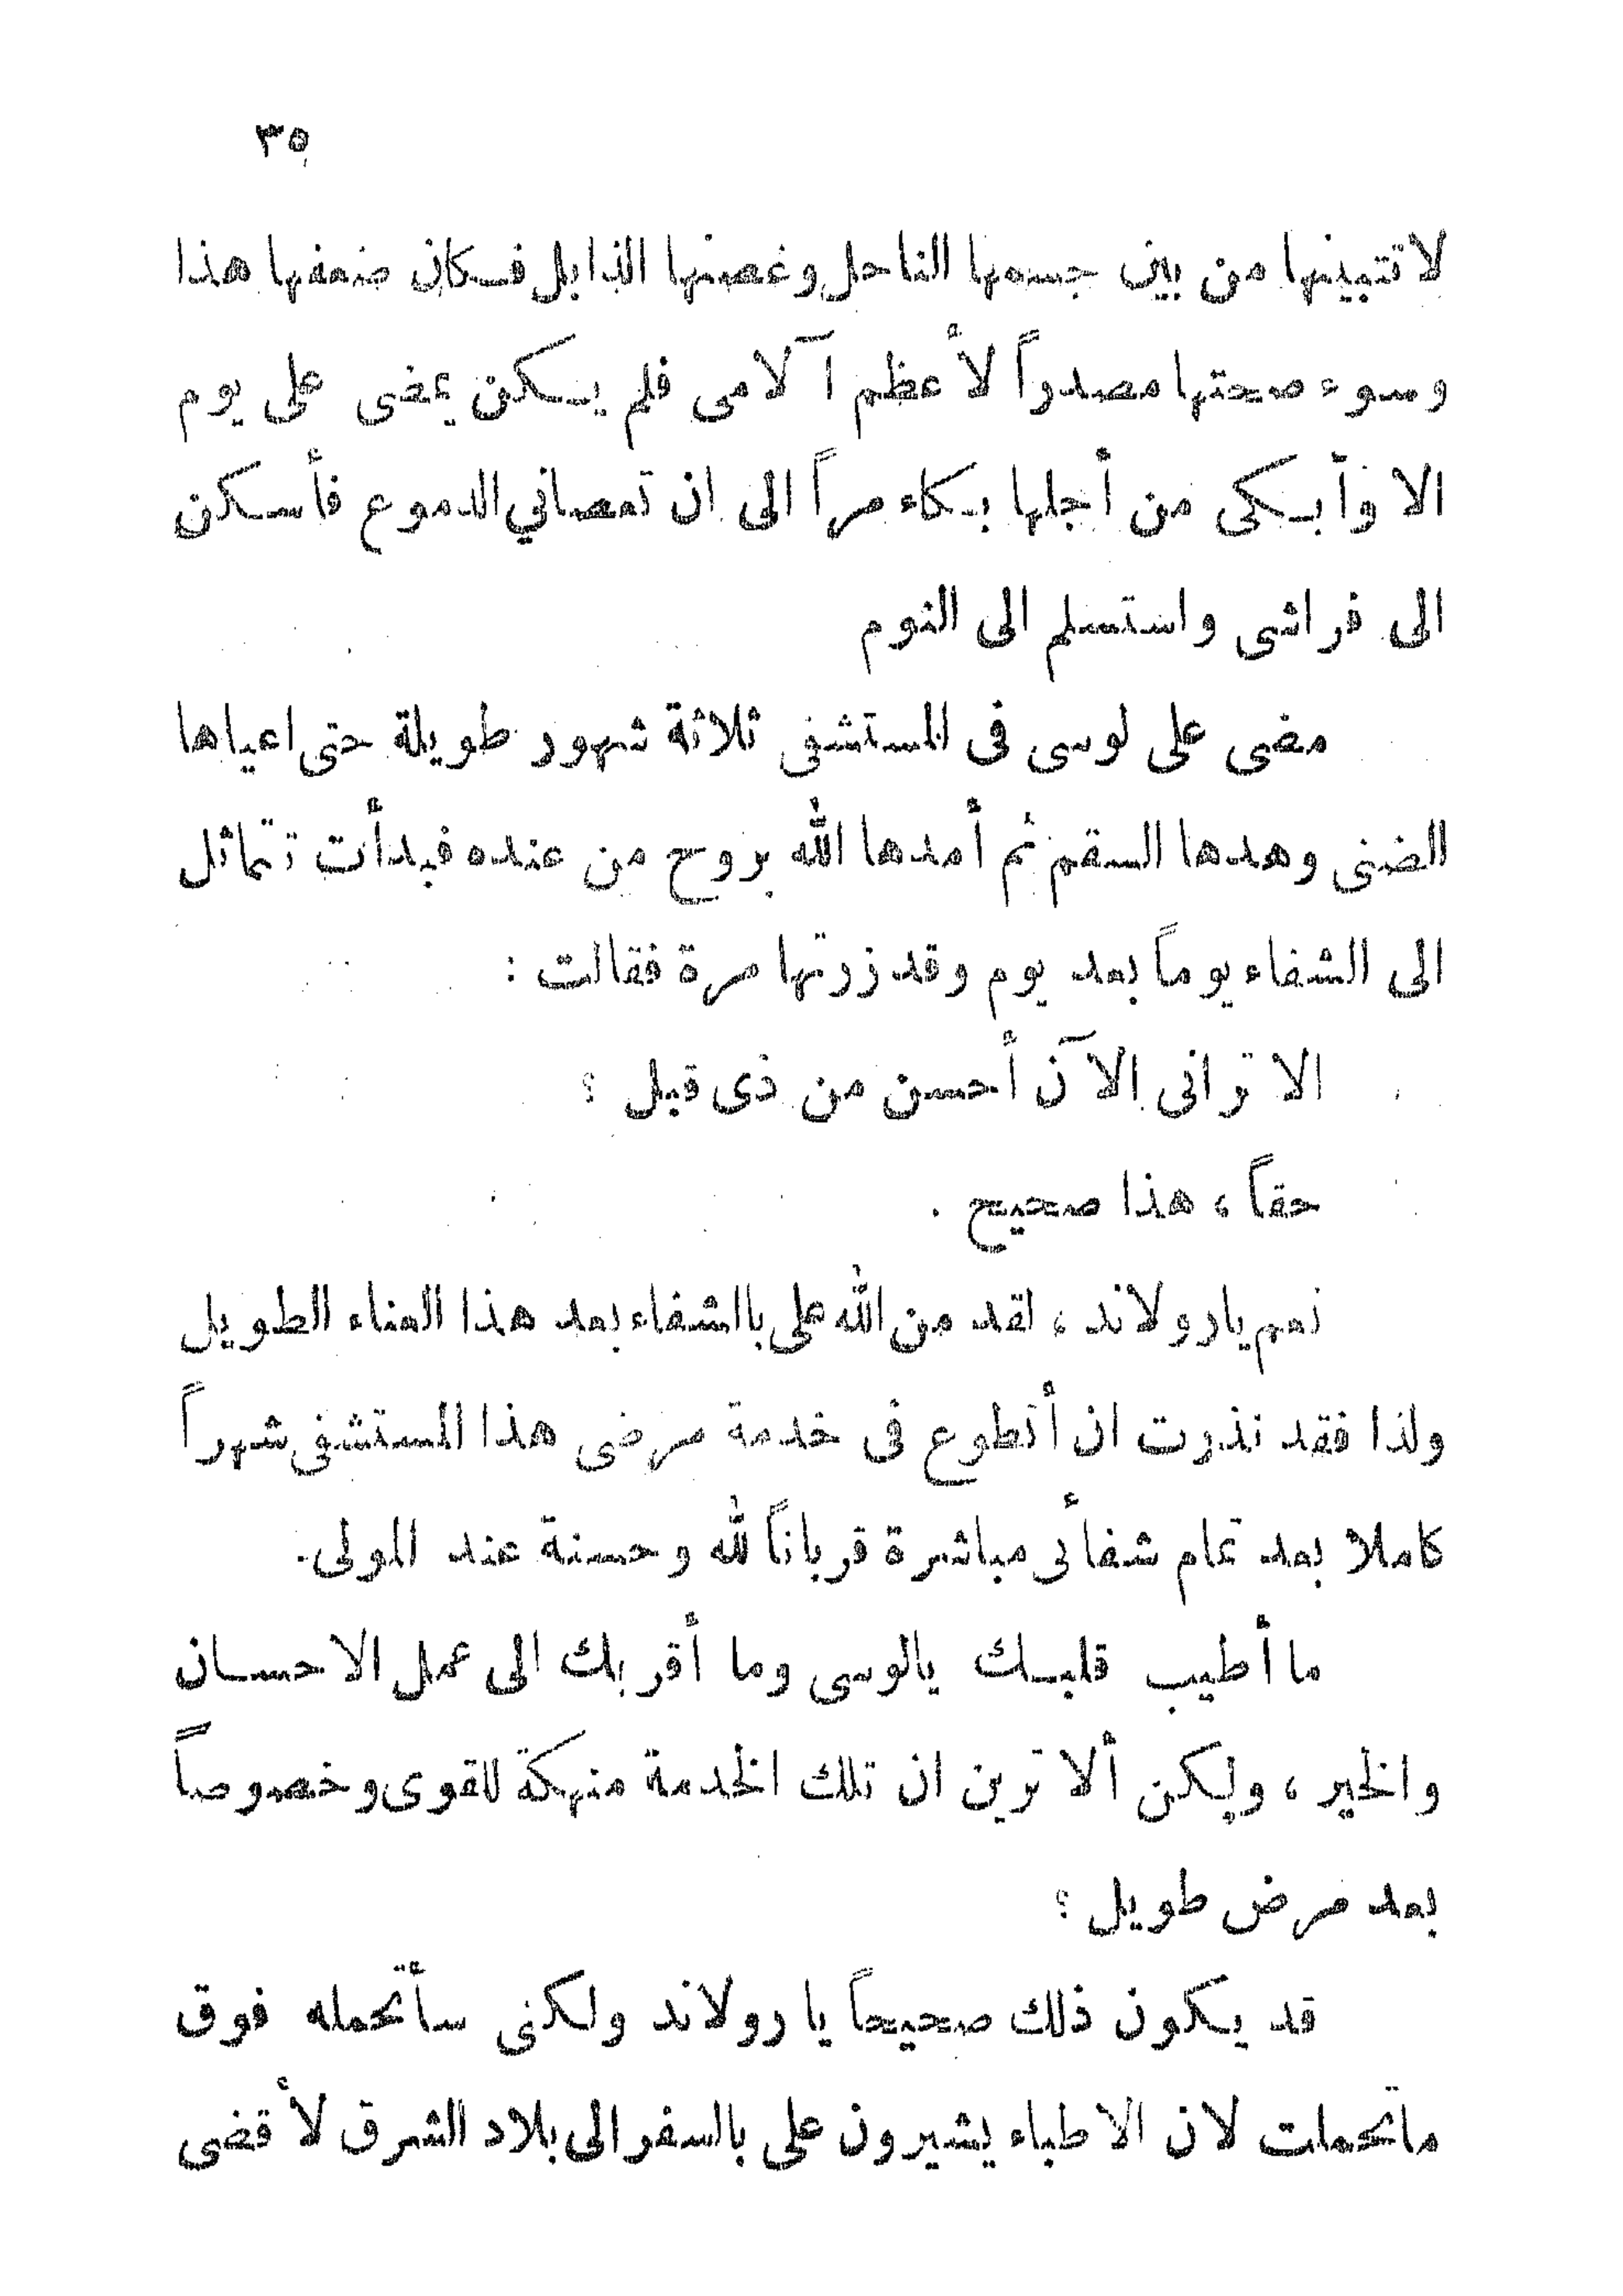 ٣٥
لا تتبينها من بين جسمها الناحل وغصنها الذابل فكان ضعفها هذا
وسوء صحتها مصدراً لأعظم آلامى فلم يكن يمضى على يوم
الا وأبكى من أجلها بكاء مراً الى ان تعصاني الدموع فأسكن
الى فراشى واستسلم الى النوم
مضى على لوسى فى المستشفى ثلاثة شهور طويلة حتى اعياها
الضنى وهدها السقم ثم أمدها الله بروح من عنده فبدأت تتماثل
الى الشفاء يوماً بعد يوم وقد زرتها مرة فقالت :
الا ترانى الآن أحسن من ذى قبل ؟
حقاً ، هذا صحيح .
نعم يارولاند ، لقد من الله على باالشفاء بعد هذا العناء الطويل
ولذا فقد نذرت ان أتطوع فى خدمة مرضى هذا المستشفى شهراً
كاملا بعد تمام شفأئى مباشرة قرباناً لله وحسنة عند المولى.
ما أطيب قلبك يالوسى وما أقربك الى عمل الاحسان
والخير ، ولكن ألا ترين ان تلك الخدمة منهكة للقوى وخصوصاً
بعد مرض طويل ؟
قد يكون ذلك صحيحاً يا رولاند ولكنى سأتحمله فوق
ماتحملت لان الاطباء يشيرون على بالسفر الى بلاد الشرق لأقضى